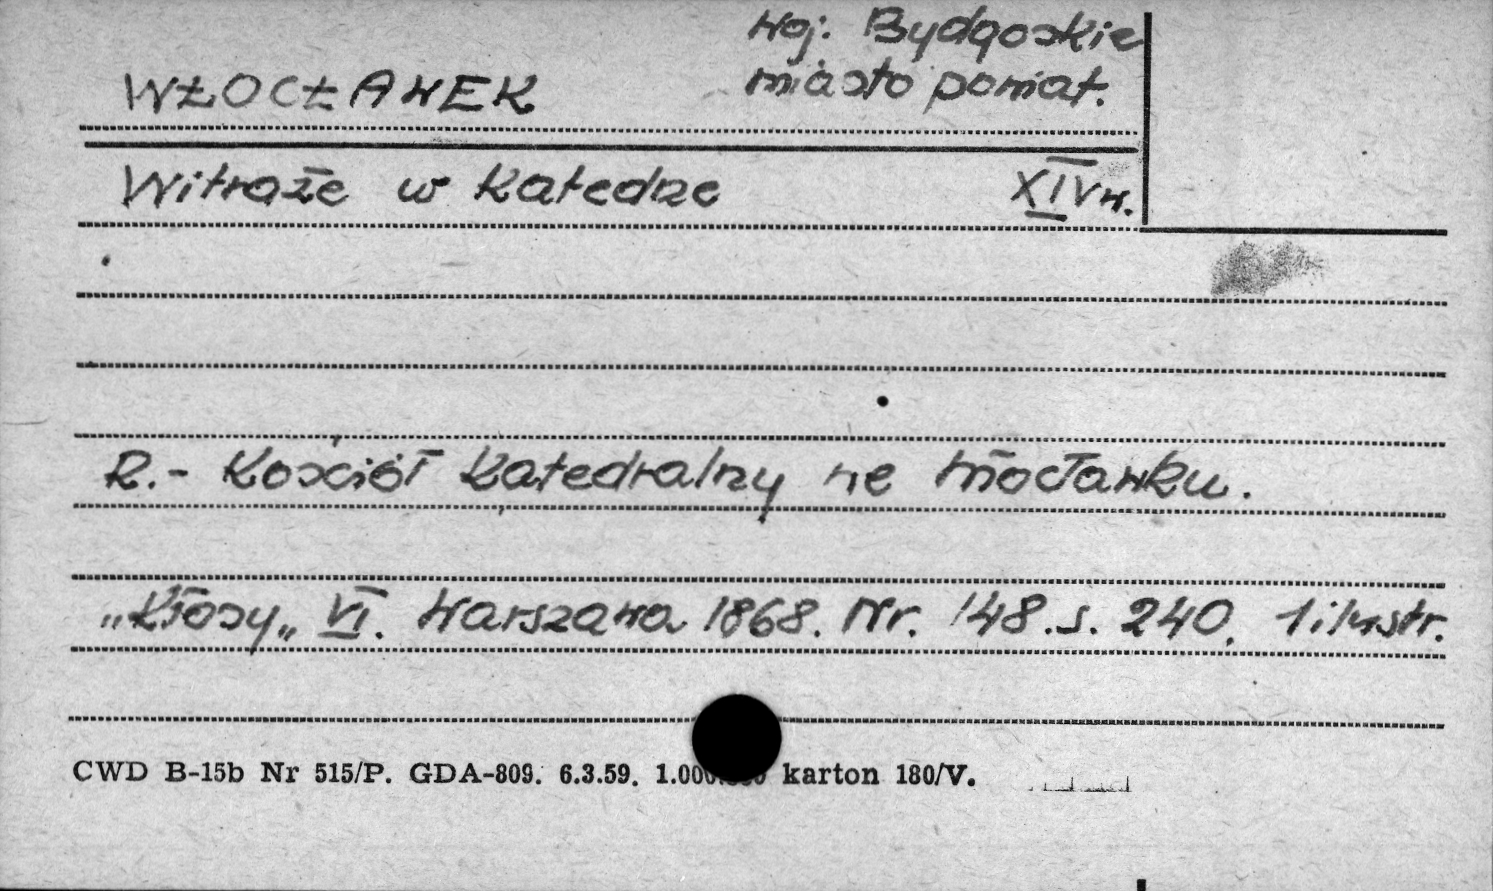 Woj. Bydgoskie
WŁOCŁAWEK miasto powiat.
Witraże w Katedze XIV w.
R.- Kościół Katedralny we Włocławku.
"Kłosy„ VI. Warszawa 1868. Nr. 148. s. 240. 1 ilustr.
CWD B-15b Nr 515/P. GDA-809. 6.3.59. karton 180/V.